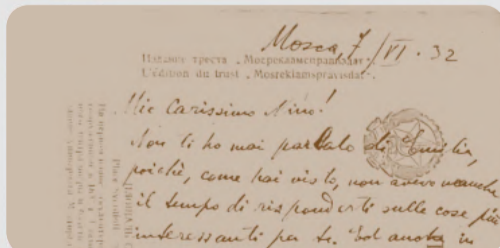 Mosca, 7/VI. 32
Издание треста „Мосрекламсправиздат“.
L'édition du trust „Mosreklamspravisdat“.
Mio carissimo Nino!
Non ti ho mai parlato di Emilio,
poichè, come hai visto, non avevo neanche
il tempo di risponderti sulle cose più
interessanti per te. Ed anche in